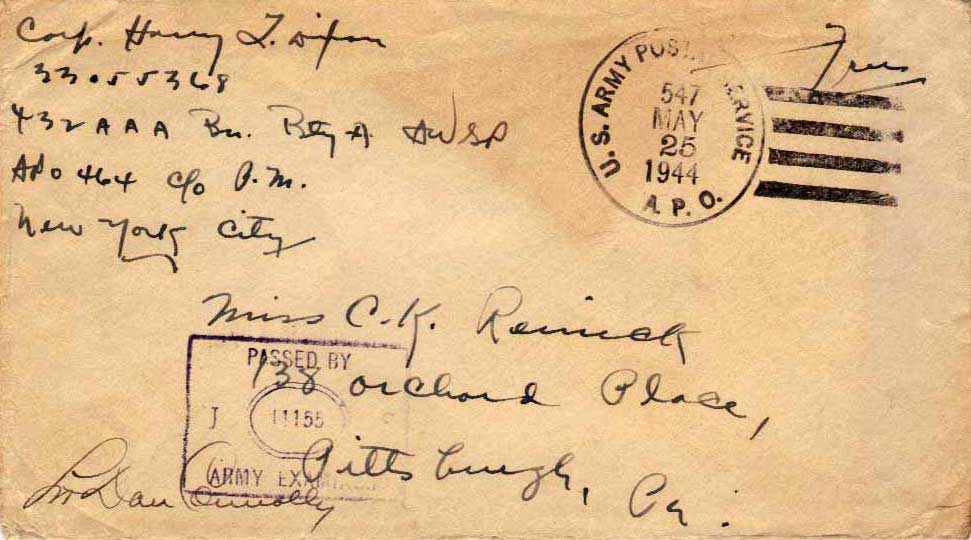 Corp. Harry L. Dixon
33055368
432 AAA Bn. Bty A. AWSP
APO 464 c/o P.M.
New York City
Free
U.S. ARMY POSTAL SERVICE
547
MAY
25
1944
A.P.O.
Miss C.K. Reinick
138 Orchard Place,
Pittsburgh, Pa.
PASSED BY
11155
ARMY EXAMINER
Dan Connolly